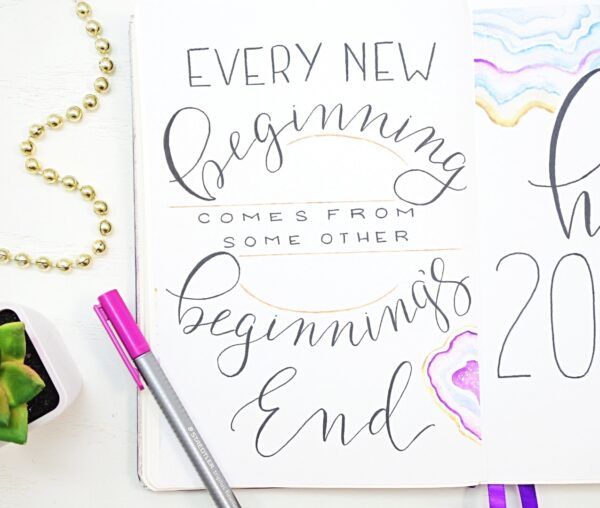 EVERY NEW
beginning
COMES FROM
SOME OTHER
beginning's
End
20
STAEDTLER